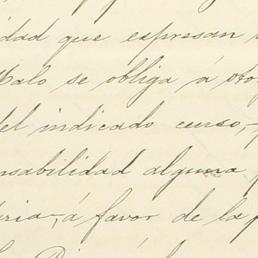 dad que expresan
Malo se obliga á oto
del indicado curso,-
nsabilidad alguna
ria-, á favor de la p